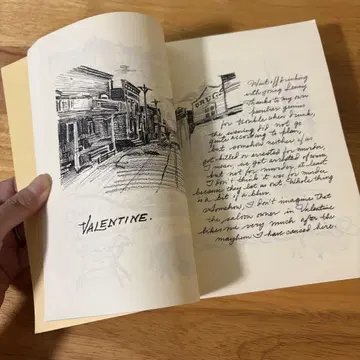 VALENTINE.
DRUG
Went off drinking
with young Lenny
Thanks to my own
peculiar genius
for trouble when drunk,
the evening did not go
quite according to plan,
but somehow neither of us
got killed or arrested for murder.
I mean, we got arrested of course
but not for murder, at least
I don't think it was for murder
because they let us out. Whole thing
is a bit of a blur.
Somehow, I don't imagine that
the saloon owner in Valentine
likes me very much after the
mayhem I have caused here.